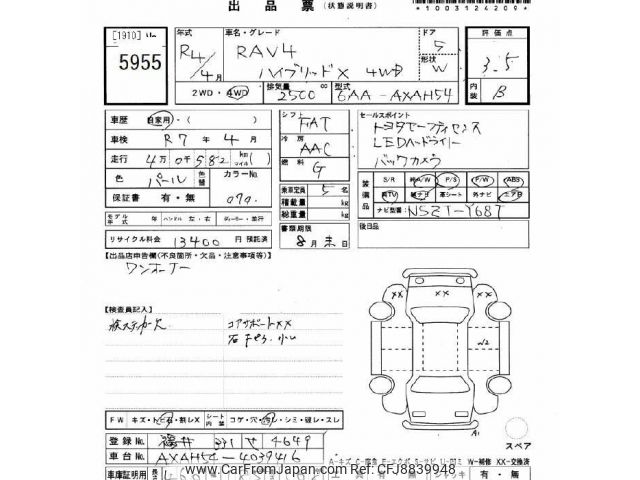 出品票 (状態説明書)
*1003124209*
[1910] No.
5955
年式 車名・グレード ドア 評価点
R4/4月 RAV4 ハイブリッドX 4WD 5 形状 W 3.5
2WD・4WD 排気量 2500 cc 型式 6AA-AXAH54 内装 B
車歴 自家用・( ) シフト FAT セールスポイント
車検 R7年4月 冷房 AAC トヨタセーフティセンス
走行 4万0千582 km(マイル) 燃料 G LEDヘッドライト
色 パール 色替 カラーNo. バックカメラ
保証書 有・無 070. 乗車定員 5名 装備品 S/R 純A/W P/S P/W ABS
積載量 kg 純TV 純ナビ 革シート 外ナビ エアB
モデル年式 年 ハンドル 左・右 ディーラー・並行 総重量 kg ナビ型番( NSZT-Y68T
リサイクル料金 13400円 預託済 書類期限 8月末日 後日品
【出品店申告欄(不良箇所・欠品・注意事項等)】
ワンオーナー
【検査員記入】
コアサポートXX
XX XX
W2
A1
スペア
FW キズ・トビ石・刺レX シート内装 コゲ・穴・汚レ・シミ・破レ・スレ
登録No. 福井 331 せ 4649
車台No. AXAH54-4039416
車庫証明
W-補修 XX-交換済
CarFromJapan.com Ref: CFJ8839948